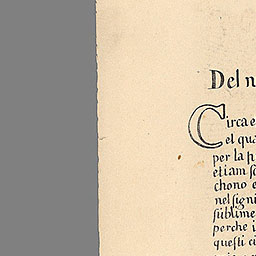 Del n
Circa e
el qua
per la p
etiam so
chono e
nel signi
sublime
perche i
questi ci